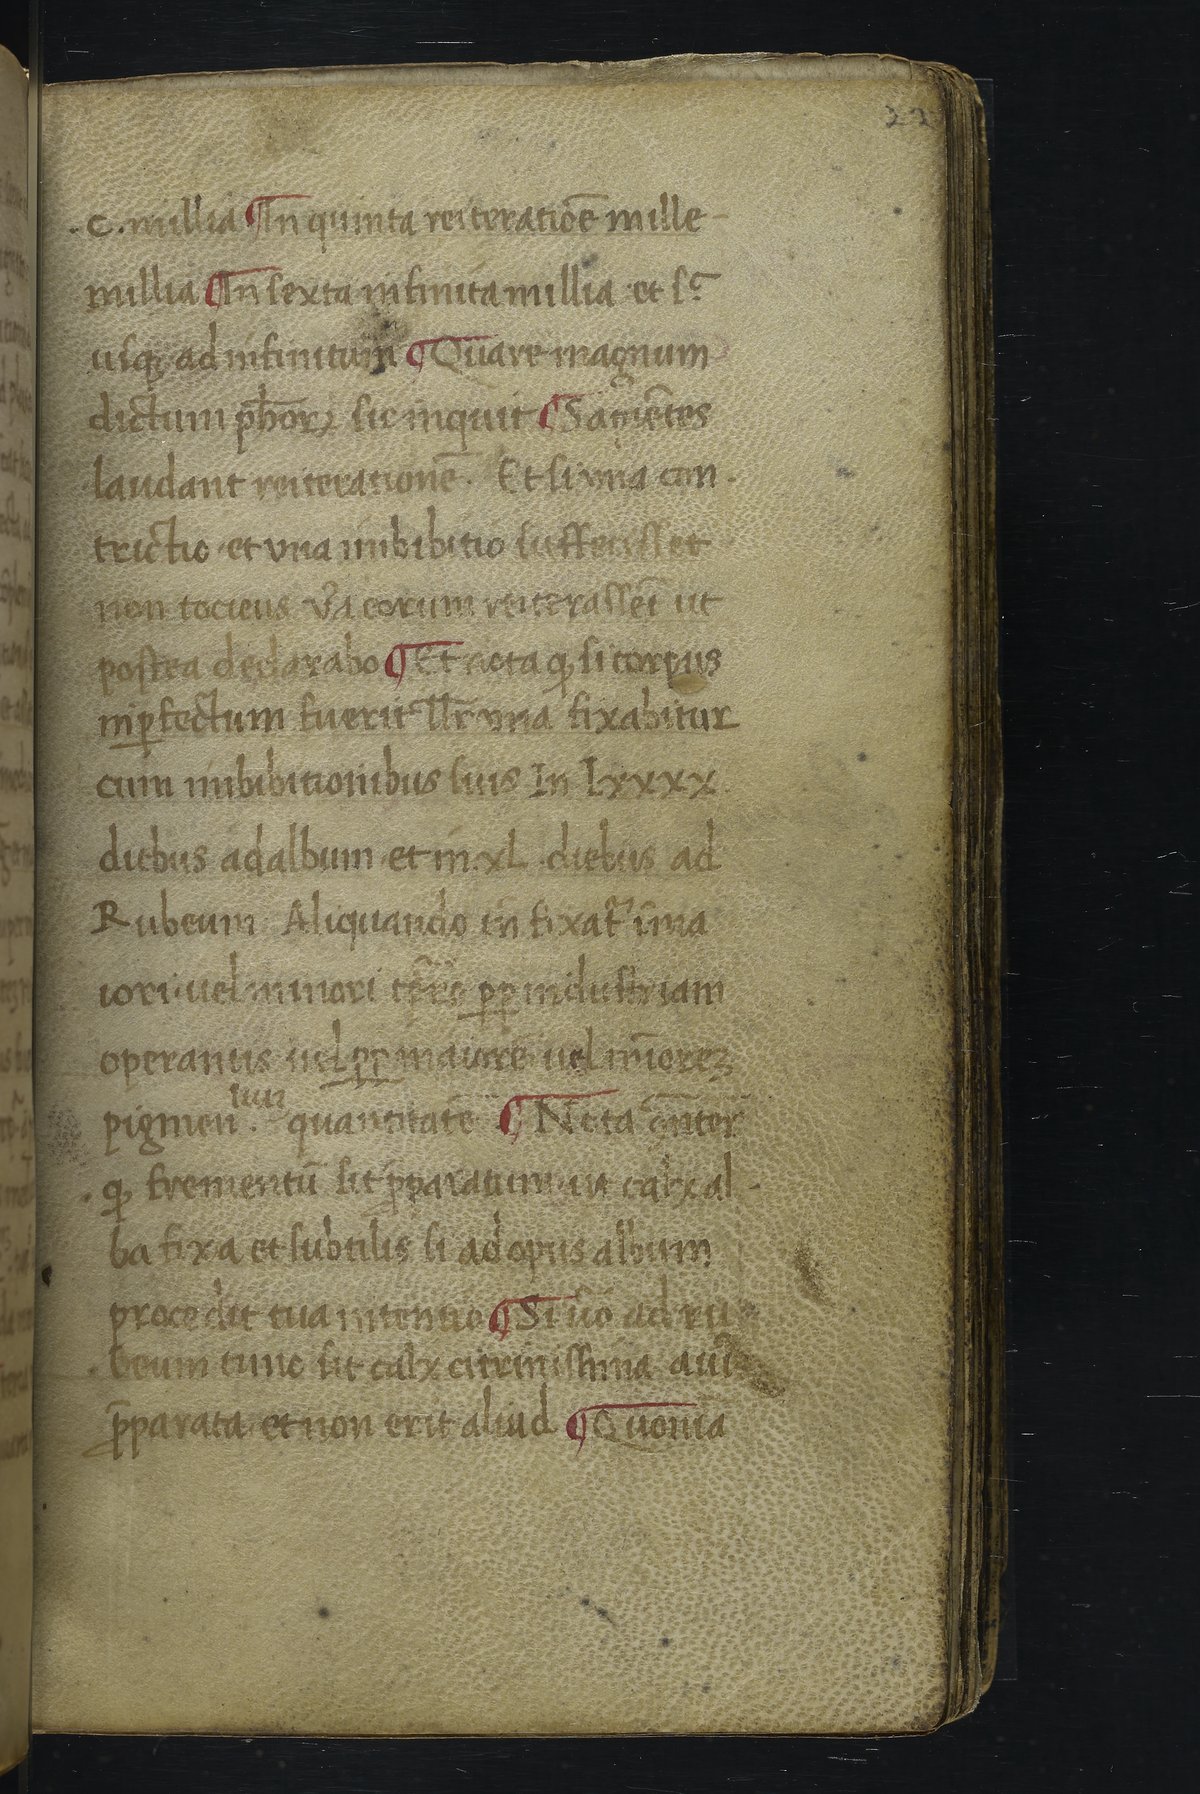 22
.C. millia ¶ In quinta reiteratiōē mille
millia ¶ In sexta infinita millia et sꝫ
usqꝫ ad infinitum ¶ Quare magnum
dictum ph̄oꝝ sic inquit ¶ Sapiētes
laudant reiterationē. Et si una con
trictio et una imbibitio suffecisset
non tociens v̄a eorum reiterassēt ut
postea declarabo ¶ Et nota qꝫ si corpus
inꝑfectum fuerit una fixabitur
cum imbibitionibus suis In Lxxxx
diebus ad album et in .xL. diebus ad
Rubeum Aliquando in fixat' in ma
iori uel minori tꝑre ꝓꝑ industriam
operantis uel ꝓꝑ maiorē uel miorēꝫ
pigmen. quantitatē ¶ Nota
qꝫ frementū sit p̄paratum ut calx al
ba fixa et subtilis si ad opus album
procedit tua intentio ¶ Si uō ad ru
beum tunc sit calx citrinissima
p̄parata et non erit aliud ¶ Quoniā